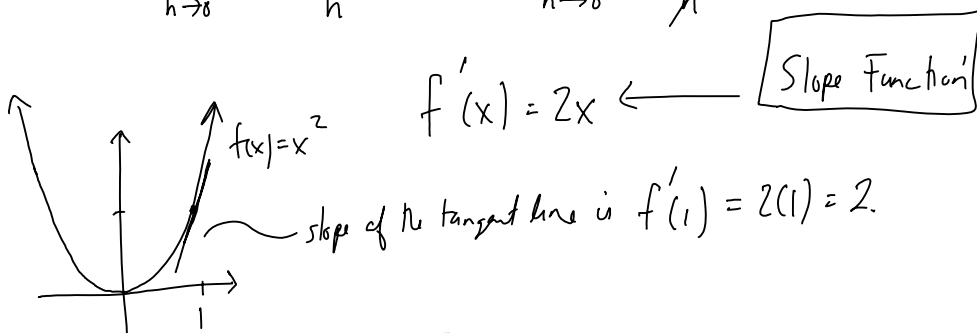 h→0 h h→0 h
f'(x) = 2x ← Slope Function
f(x)=x²
slope of the tangent line is f'(1) = 2(1) = 2.
1